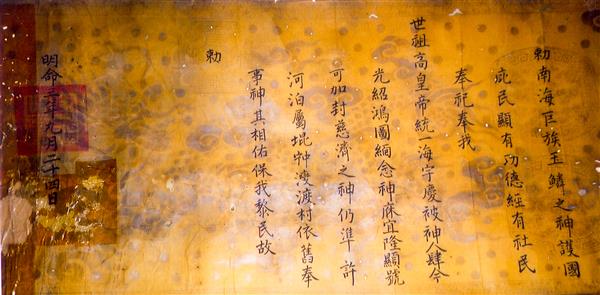 勅南海巨族玉鱗之神護國
庇民顯有功德經有社民
奉祀奉我
世祖高皇帝統一海宇慶被神人肆今
光紹鴻圖緬念神庥宜隆顯號
可加封慈濟之神仍準許
河泊屬渡村依舊奉
事神其相佑保我黎民故
勅
明命三年九月二十四日